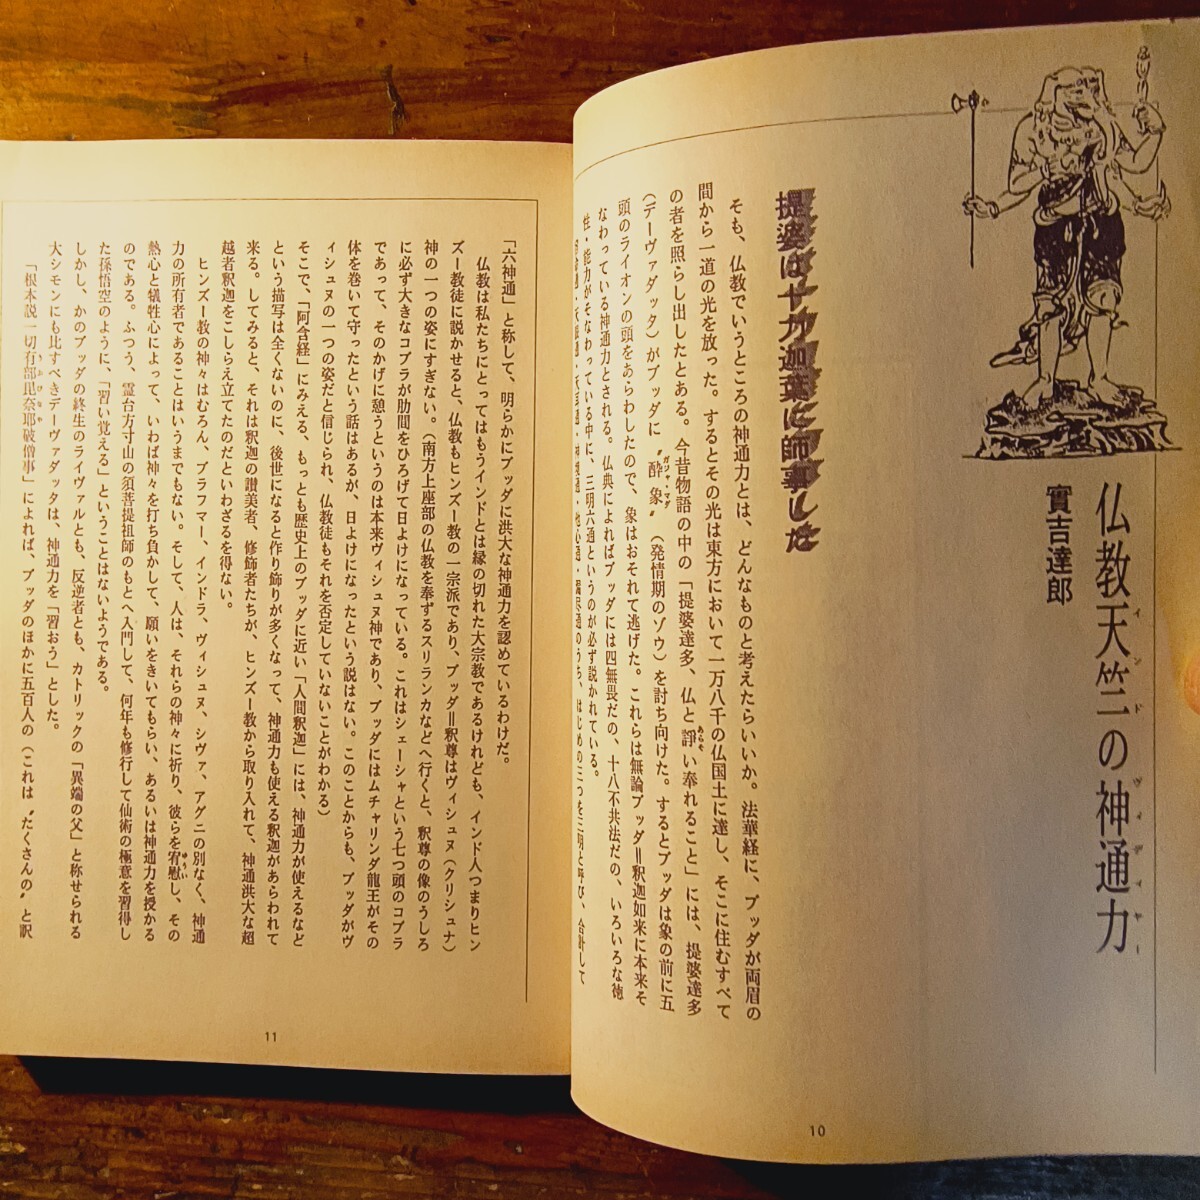 仏教天竺の神通力
インド ヴィディヤー
實吉達郎
提婆は十力迦葉に師事した
そも、仏教でいうところの神通力とは、どんなものと考えたらいいか。法華経に、ブッダが両眉の
間から一道の光を放った。するとその光は東方において一万八千の仏国土に達し、そこに住むすべて
の者を照らし出したとある。今昔物語の中の「提婆達多、仏と諍い奉れること」には、提婆達多
(デーヴァダッタ)がブッダに〝酔象〟(発情期のゾウ)を討ち向けた。するとブッダは象の前に五
頭のライオンの頭をあらわしたので、象はおそれて逃げた。これらは無論ブッダ=釈迦如来に本来そ
なわっている神通力とされる。仏典によればブッダには四無畏だの、十八不共法だの、いろいろな徳
性・能力がそなわっている中に、三明六通というのが必ず説かれている。
のうち、はじめの三つを三明と呼び、合計して
10
「六神通」と称して、明らかにブッダに洪大な神通力を認めているわけだ。
仏教は私たちにとってはもうインドとは縁の切れた大宗教であるけれども、インド人つまりヒン
ズー教徒に説かせると、仏教もヒンズー教の一宗派であり、ブッダ=釈尊はヴィシュヌ(クリシュナ)
神の一つの姿にすぎない。(南方上座部の仏教を奉ずるスリランカなどへ行くと、釈尊の像のうしろ
に必ず大きなコブラが肋間をひろげて日よけになっている。これはシェーシャという七つ頭のコブラ
であって、そのかげに憩うというのは本来ヴィシュヌ神であり、ブッダにはムチャリンダ龍王がその
体を巻いて守ったという話はあるが、日よけになったという説はない。このことからも、ブッダがヴ
ィシュヌの一つの姿だと信じられ、仏教徒もそれを否定していないことがわかる)
そこで、「阿含経」にみえる、もっとも歴史上のブッダに近い「人間釈迦」には、神通力が使えるなど
という描写は全くないのに、後世になると作り飾りが多くなって、神通力も使える釈迦があらわれて
来る。してみると、それは釈迦の讃美者、修飾者たちが、ヒンズー教から取り入れて、神通洪大な超
越者釈迦をこしらえ立てたのだといわざるを得ない。
ヒンズー教の神々はむろん、ブラフマー、インドラ、ヴィシュヌ、シヴァ、アグニの別なく、神通
力の所有者であることはいうまでもない。そして、人は、それらの神々に祈り、彼らを宥慰し、その
熱心と犠牲心によって、いわば神々を打ち負かして、願いをきいてもらい、あるいは神通力を授かる
のである。ふつう、霊台方寸山の須菩提祖師のもとへ入門して、何年も修行して仙術の極意を習得し
た孫悟空のように、「習い覚える」ということはないようである。
しかし、かのブッダの終生のライヴァルとも、反逆者とも、カトリックの「異端の父」と称せられる
大シモンにも比すべきデーヴァダッタは、神通力を「習おう」とした。
「根本説一切有部毘奈耶破僧事」によれば、ブッダのほかに五百人の(これは〝たくさんの〟と訳
11